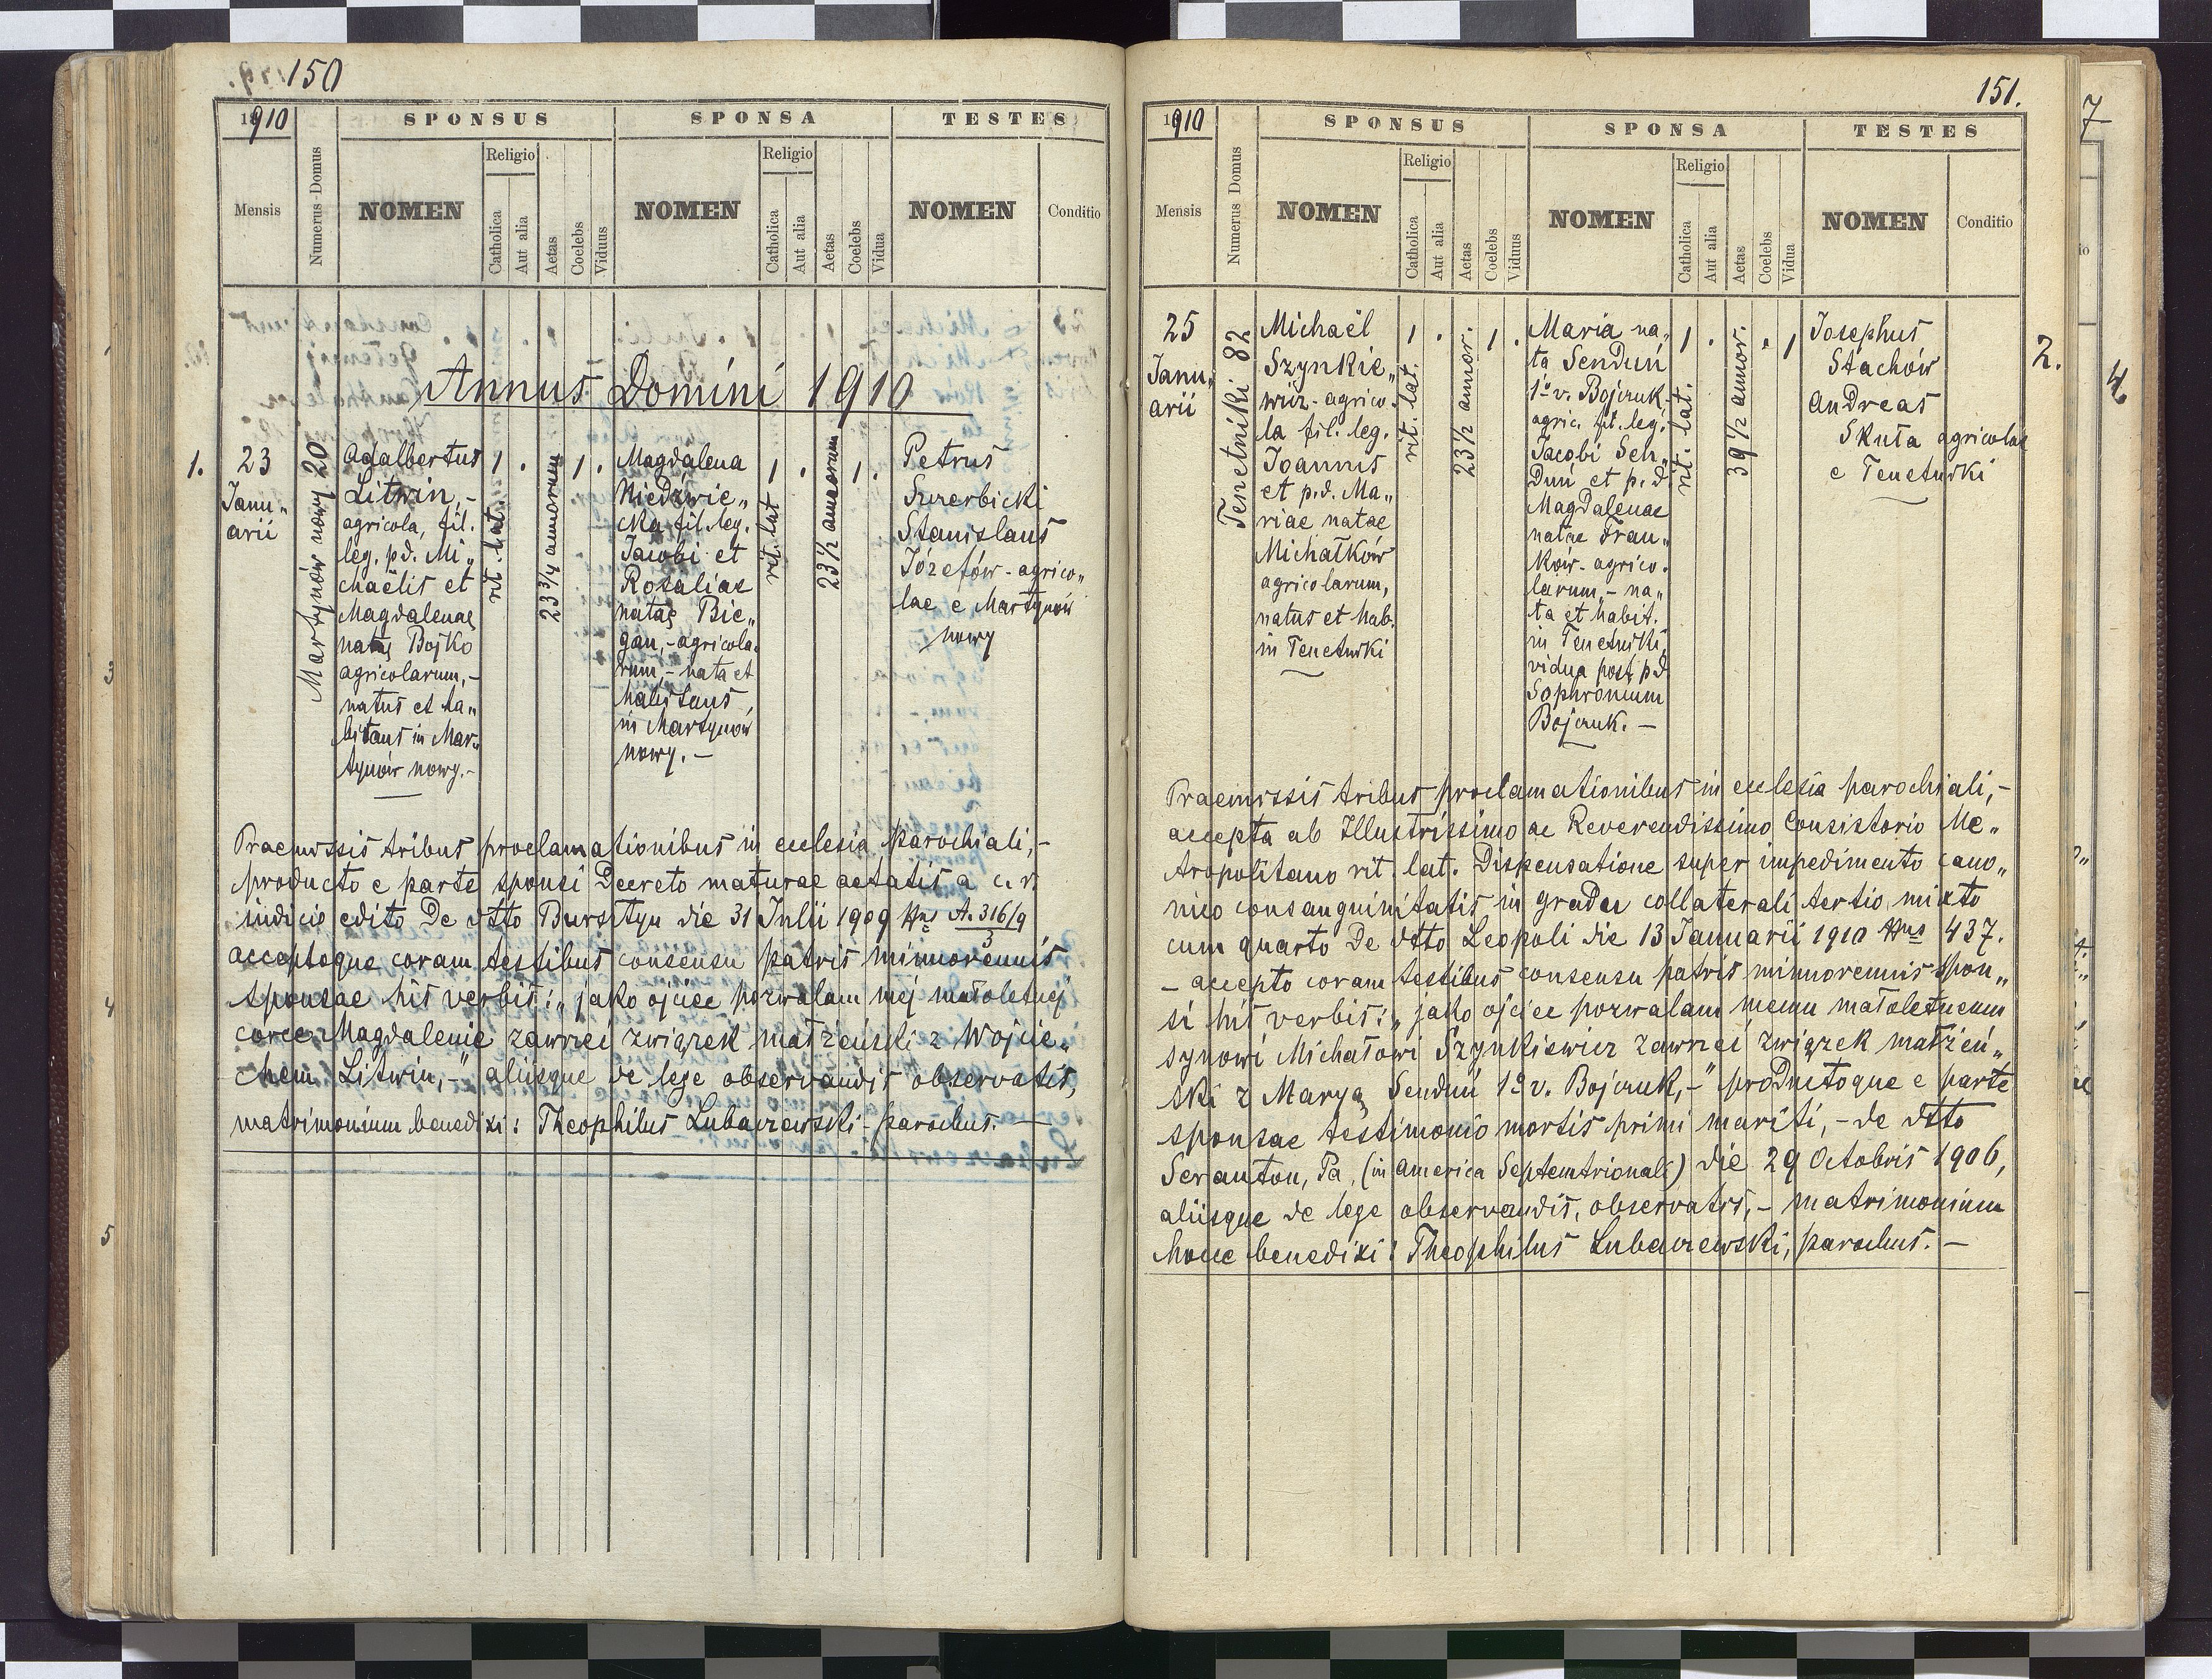 150
1910
SPONSUS
SPONSA
TESTES
Mensis
Numerus Domus
NOMEN
Religio
Catholica
Aut alia
Aetas
Coelebs
Viduus
NOMEN
Religio
Catholica
Aut alia
Aetas
Coelebs
Vidua
NOMEN
Conditio
Annus Domini 1910
1.
23
Janu„
arii
Martynów nowy 20
Adalbertus
Litwin,-
agricola, fil.
leg. p.d. Mi„
chaëlis et
Magdalenae
natae Bojko
agricolarum,-
natus et ha„
bitans in Mar„
tynów nowy.-
1
rit. lat.
.
23 3/4 annorum
1
.
Magdalena
Niedźwie„
cka fil. leg.
Jacobi et
Rosaliae
natae Bie„
gan,-agricola„
rum,- nata et
habitans
in Martynów
nowy.-
1
rit. lat
.
23 1/2 annorum
1
.
Petrus
Szczerbicki
Stanislaus
Józefów-agrico„
lae e Martynów
nowy
Praemissis tribus proclamationibus in ecclesia parochiali,-
producto e parte sponsi Decreto maturae aetatis a c. r.
iudicio edito De dtto Bursztyn die 31 Julii 1909 Nrus A. 316/9
3
acceptoque coram testibus consensu patris minnorennis
sponsae his verbis: „jako ojciec pozwalam mej małoletniej
córce Magdalenie zawrzeć związek małżeński z Wojcie„
chem Litwin,-" aliisque de lege observandis observatis,
matrimonium benedixi: Theophilus Lubaczewski-parochus.—
151.
1910
SPONSUS
SPONSA
TESTES
Mensis
Numerus Domus
NOMEN
Religio
Catholica
Aut alia
Aetas
Coelebs
Viduus
NOMEN
Religio
Catholica
Aut alia
Aetas
Coelebs
Vidua
NOMEN
Conditio
25
Janu„
arii
Tenetniki 82
Michaël
Szynkie„
wicz-agrico„
la fil. leg.
Joannis
et p.d. Ma„
riae natae
Michałków
agricolarum,
natus et hab.
in Tenetniki
1
rit. lat.
.
23 1/2 annor.
1
.
Maria na„
ta Senduń
1º v. Bojczuk,
agric. fil. leg.
Jacobi Sen„
duń et p.d.
Magdalenae
natae Fran„
ków-agrico„
larum,- na„
ta et habit.
in Tenetniki,
vidua post p.d.
Sophronium
Bojczuk.—
1
rit. lat.
.
39 1/2 annor.
.
1
Josephus
Stachów
Andreas
Skuta agricolae
e Tenetniki
2.
Praemissis tribus proclamationibus in ecclesia parochiali,-
accepta ab Illustrissimo ac Reverendissimo Consistorio Me„
tropolitano rit. lat. Dispensatione super impedimento cano„
nico consanguinitatis in gradu collaterali tertio mixto
cum quarto De dtto Leopoli die 13 Januarii 1910 Nrus 437.
- accepto coram testibus consensu patris minnorennis spon„
si his verbis: „jako ojciec pozwalam memu małoletniemu
synowi Michałowi Szynkiewicz zawrzeć związek małżeń„
ski z Maryą Senduń 1º v. Bojczuk,-" productoque e parte
sponsae testimonio mortis primi mariti,- de dtto
Scranton, Pa, (in America Septemtrionali) die 29 Octobris 1906,
aliisque de lege observandis, observatis,- matrimonium
hocce benedixi: Theophilus Lubaczewski, parochus.—
3
4
5
7
4